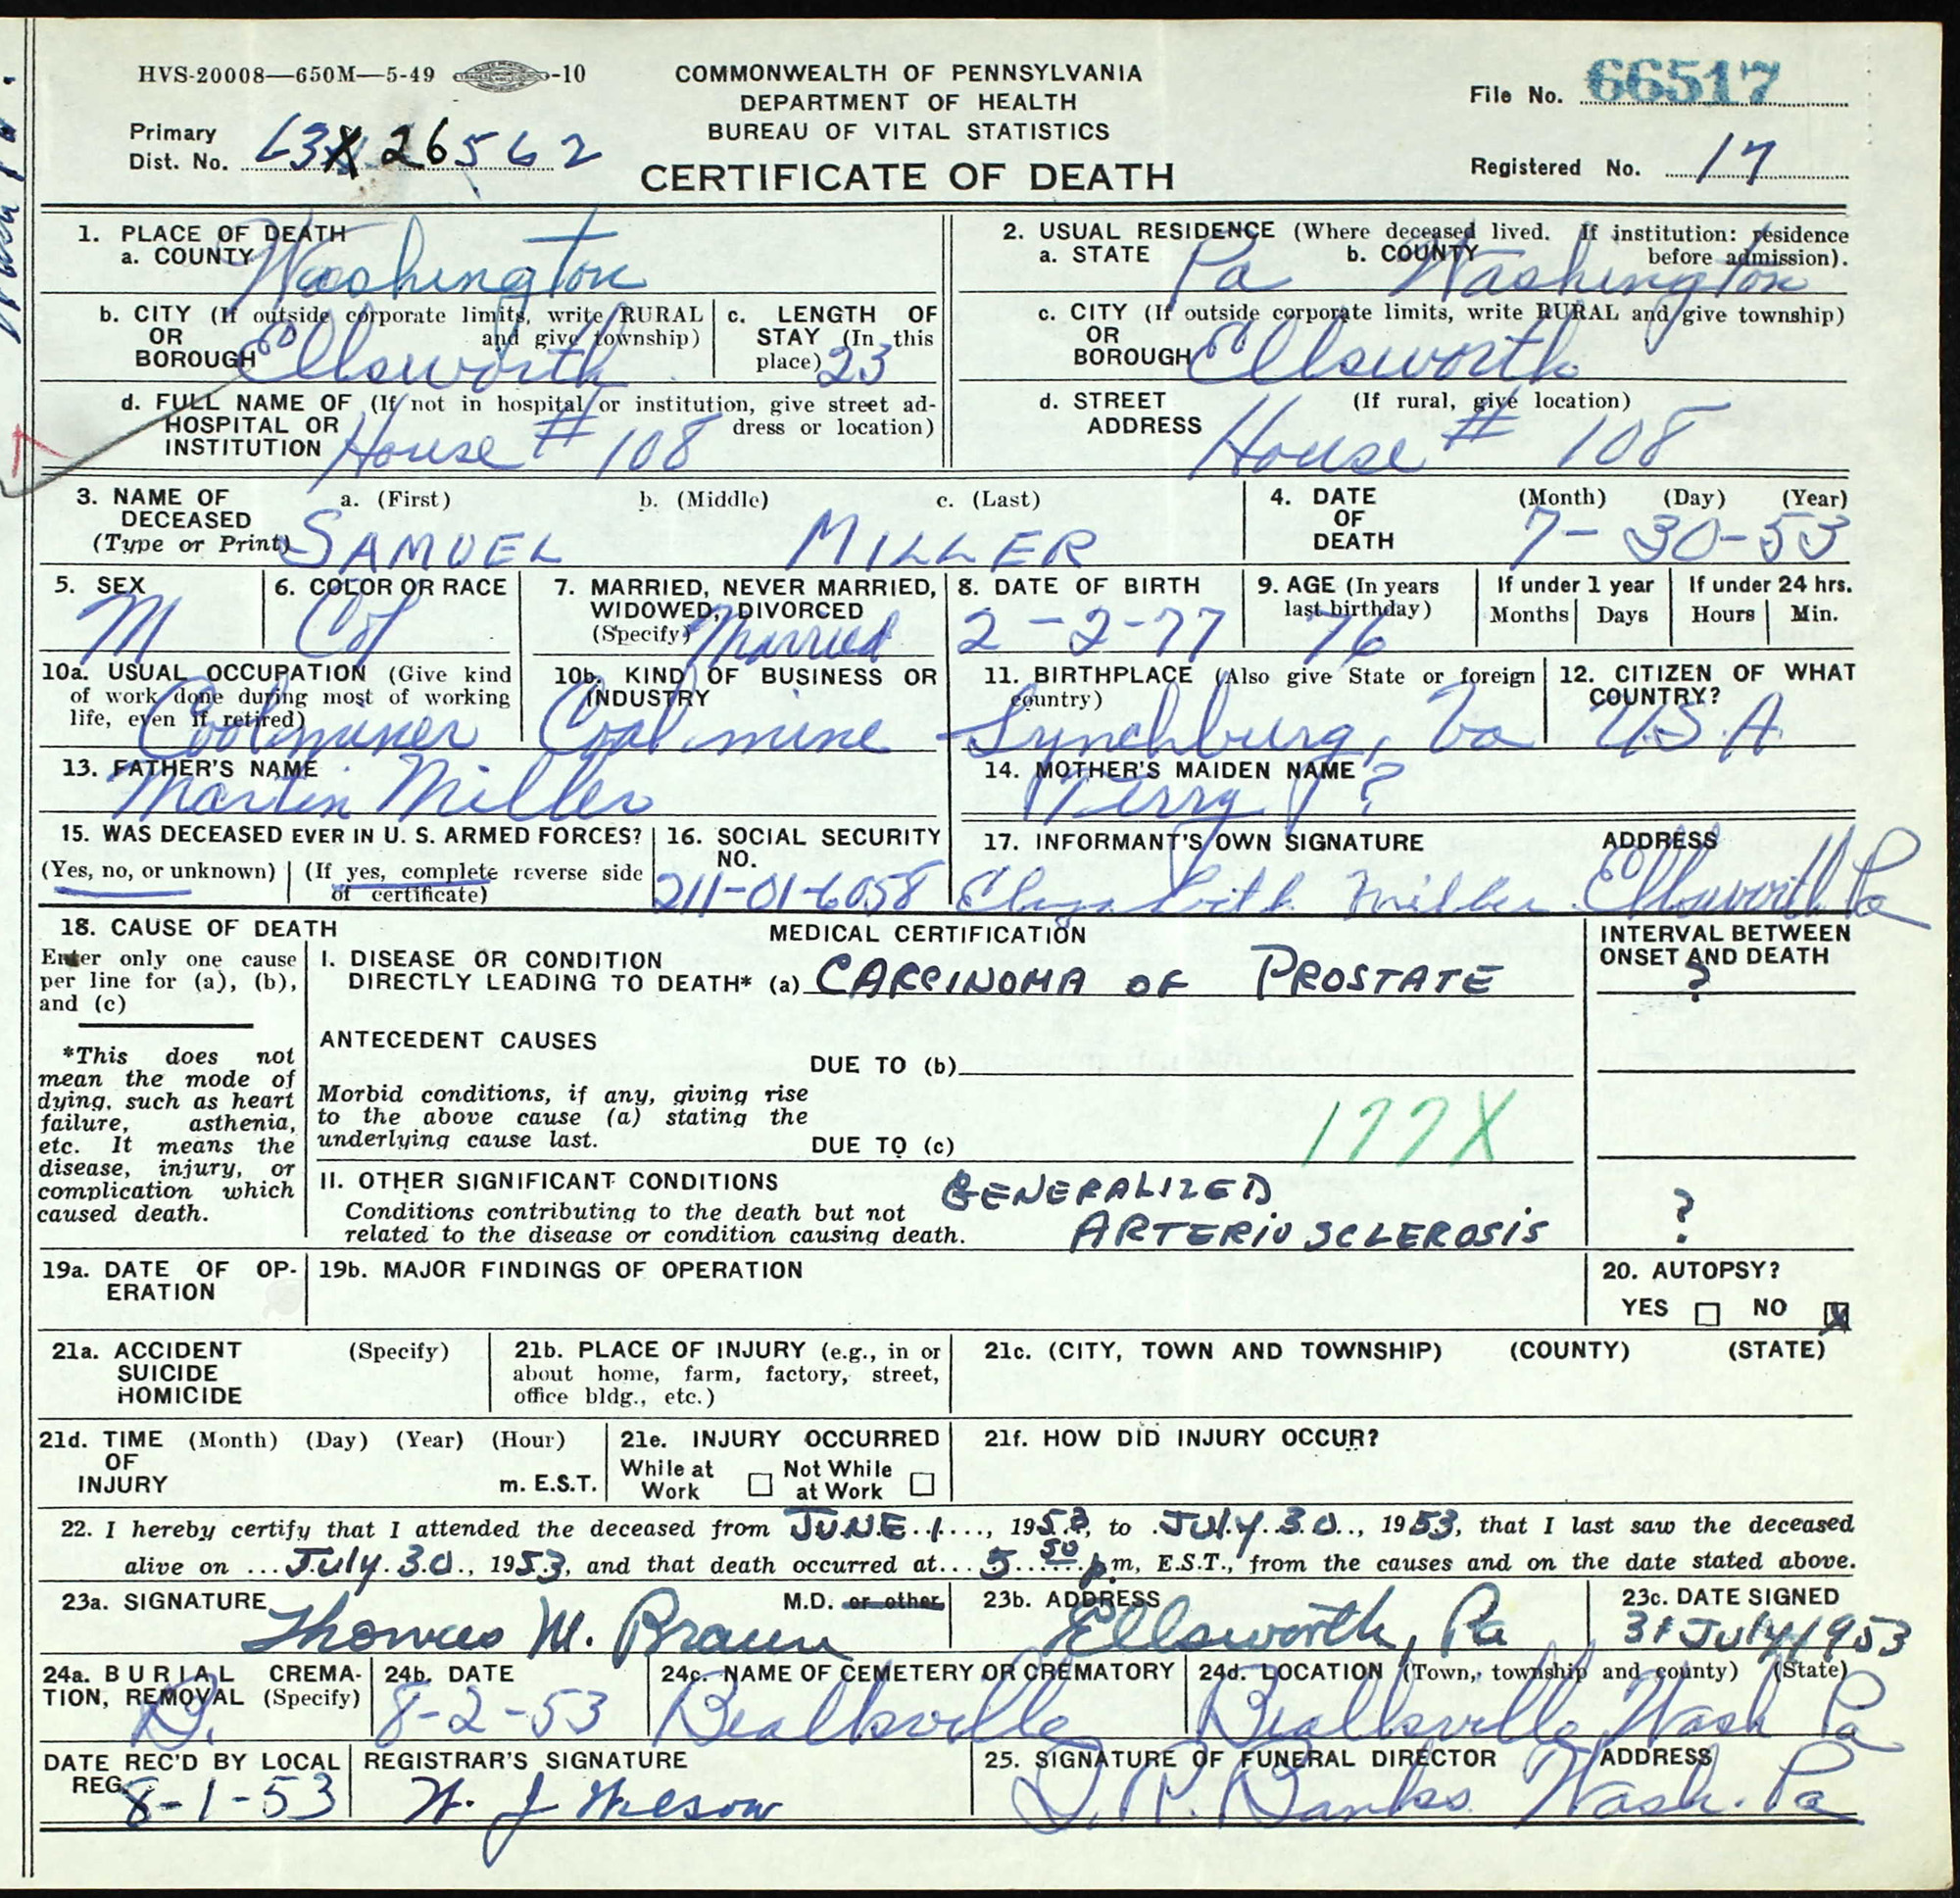 HVS-20008—650M—5-49 -10
COMMONWEALTH OF PENNSYLVANIA
DEPARTMENT OF HEALTH
BUREAU OF VITAL STATISTICS
CERTIFICATE OF DEATH
File No. 66517
Primary
Dist. No. 63X 26562
Registered No. 17
1. PLACE OF DEATH
a. COUNTY Washington
b. CITY (If outside corporate limits, write RURAL
OR and give township)
BOROUGH Ellsworth
c. LENGTH OF
STAY (In this
place) 23
d. FULL NAME OF (If not in hospital or institution, give street ad-
HOSPITAL OR dress or location)
INSTITUTION House # 108
2. USUAL RESIDENCE (Where deceased lived. If institution: residence
before admission).
a. STATE Pa b. COUNTY Washington
c. CITY (If outside corporate limits, write RURAL and give township)
OR
BOROUGH Ellsworth
d. STREET (If rural, give location)
ADDRESS House # 108
3. NAME OF a. (First) b. (Middle) c. (Last)
DECEASED
(Type or Print) SAMUEL MILLER
4. DATE (Month) (Day) (Year)
OF
DEATH 7-30-53
5. SEX
M
6. COLOR OR RACE
Col
7. MARRIED, NEVER MARRIED,
WIDOWED, DIVORCED
(Specify) Married
8. DATE OF BIRTH
2-2-77
9. AGE (In years
last birthday)
76
If under 1 year
Months Days
If under 24 hrs.
Hours Min.
10a. USUAL OCCUPATION (Give kind
of work done during most of working
life, even if retired)
Coalminer
10b. KIND OF BUSINESS OR
INDUSTRY
Coal mine
11. BIRTHPLACE (Also give State or foreign
country)
Lynchburg, Va
12. CITIZEN OF WHAT
COUNTRY?
U.S.A
13. FATHER'S NAME
Martin Miller
14. MOTHER'S MAIDEN NAME
Terry ?
15. WAS DECEASED EVER IN U. S. ARMED FORCES?
(Yes, no, or unknown) (If yes, complete reverse side
of certificate)
16. SOCIAL SECURITY
NO.
211-01-6058
17. INFORMANT'S OWN SIGNATURE ADDRESS
Elizabeth Miller Ellsworth Pa
18. CAUSE OF DEATH
Enter only one cause
per line for (a), (b),
and (c)
*This does not
mean the mode of
dying, such as heart
failure, asthenia,
etc. It means the
disease, injury, or
complication which
caused death.
MEDICAL CERTIFICATION
I. DISEASE OR CONDITION
DIRECTLY LEADING TO DEATH* (a) CARCINOMA OF PROSTATE
ANTECEDENT CAUSES
DUE TO (b)
Morbid conditions, if any, giving rise
to the above cause (a) stating the
underlying cause last.
DUE TO (c)
177X
II. OTHER SIGNIFICANT CONDITIONS
Conditions contributing to the death but not
related to the disease or condition causing death.
GENERALIZED
ARTERIOSCLEROSIS
INTERVAL BETWEEN
ONSET AND DEATH
?
?
19a. DATE OF OP-
ERATION
19b. MAJOR FINDINGS OF OPERATION
20. AUTOPSY?
YES NO X
21a. ACCIDENT (Specify)
SUICIDE
HOMICIDE
21b. PLACE OF INJURY (e.g., in or
about home, farm, factory, street,
office bldg., etc.)
21c. (CITY, TOWN AND TOWNSHIP) (COUNTY) (STATE)
21d. TIME (Month) (Day) (Year) (Hour)
OF
INJURY m. E.S.T.
21e. INJURY OCCURRED
While at Not While
Work at Work
21f. HOW DID INJURY OCCUR?
22. I hereby certify that I attended the deceased from JUNE 1, 1953, to July 30, 1953, that I last saw the deceased
alive on July 30, 1953, and that death occurred at 5 50 p m, E.S.T., from the causes and on the date stated above.
23a. SIGNATURE M.D. or other
Thomas M. Braun
23b. ADDRESS
Ellsworth, Pa
23c. DATE SIGNED
31 July 1953
24a. BURIAL CREMA-
TION, REMOVAL (Specify)
B.
24b. DATE
8-2-53
24c. NAME OF CEMETERY OR CREMATORY
Beallsville
24d. LOCATION (Town, township and county) (State)
Beallsville Wash Pa
DATE REC'D BY LOCAL
REG.
8-1-53
REGISTRAR'S SIGNATURE
W. J Wilson
25. SIGNATURE OF FUNERAL DIRECTOR ADDRESS
D. R. Banks Wash. Pa